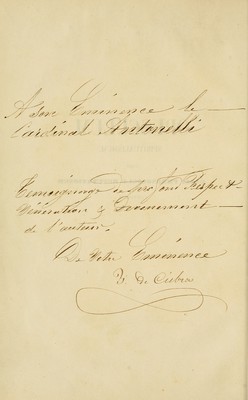 A Son Eminence le
Cardinal Antonelli
Temoignage de profond Respect
Vénération & Devouement
de l'auteur.
De Votre Eminence